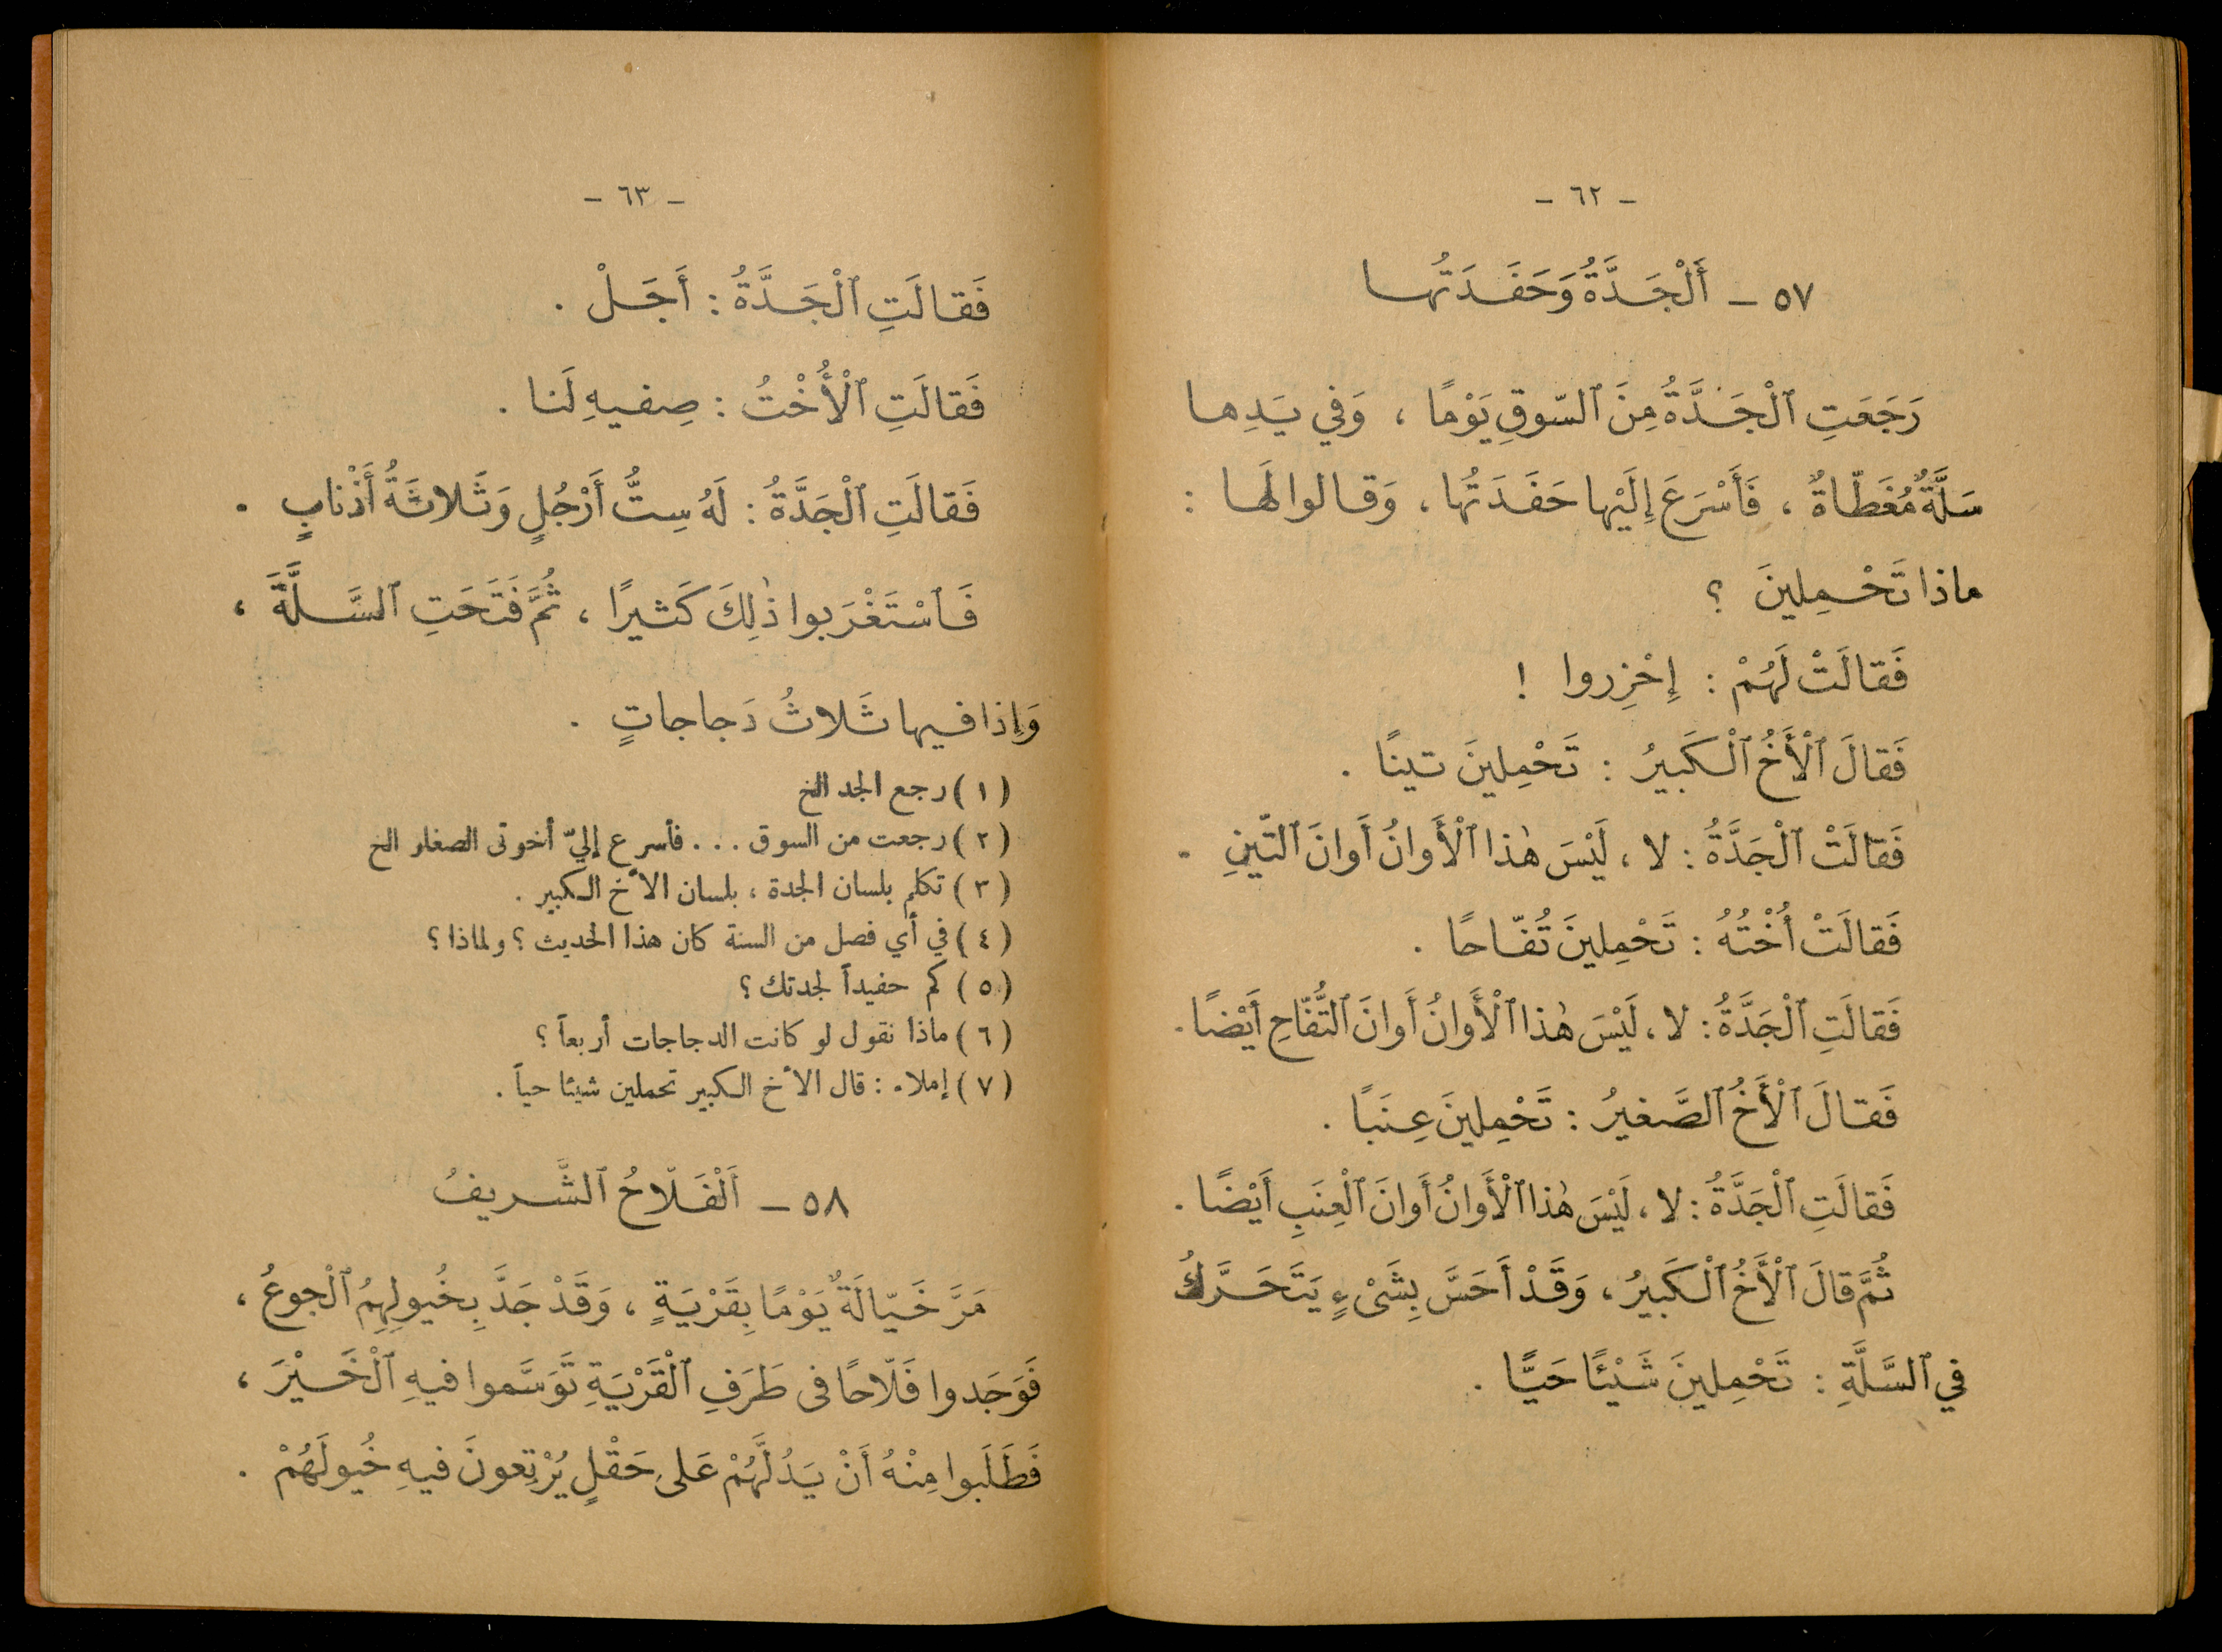 - ٦٢ -
٥٧ - أَلْجَدَّةُ وَحَفَدَتُها
رَجَعَتِ ٱلْجَدَّةُ مِنَ ٱلسّوقِ يَوْمًا ، وَفي يَدِها
سَلَّةٌ مُغَطّاةٌ ، فَأَسْرَعَ إِلَيْها حَفَدَتُها ، وَقالوا لَها :
ماذا تَحْمِلينَ ؟
فَقالَتْ لَهُمْ : إِحْزِروا !
فَقالَ ٱلْأَخُ ٱلْكَبيرُ : تَحْمِلينَ تينًا .
فَقالَتْ ٱلْجَدَّةُ : لا ، لَيْسَ هٰذا ٱلْأَوانُ أَوانَ ٱلتّينِ .
فَقالَتْ أُخْتُهُ : تَحْمِلينَ تُفّاحًا .
فَقالَتِ ٱلْجَدَّةُ : لا ، لَيْسَ هٰذا ٱلْأَوانُ أَوانَ ٱلتُّفّاحِ أَيْضًا .
فَقالَ ٱلْأَخُ ٱلصَّغيرُ : تَحْمِلينَ عِنَبًا .
فَقالَتِ ٱلْجَدَّةُ : لا ، لَيْسَ هٰذا ٱلْأَوانُ أَوانَ ٱلْعِنَبِ أَيْضًا .
ثُمَّ قالَ ٱلْأَخُ ٱلْكَبيرُ ، وَقَدْ أَحَسَّ بِشَىْءٍ يَتَحَرَّكُ
في ٱلسَّلَّةِ : تَحْمِلينَ شَيْئًا حَيًّا .
- ٦٣ -
فَقالَتِ ٱلْجَدَّةُ : أَجَلْ .
فَقالَتِ ٱلْأُخْتُ : صِفيهِ لَنا .
فَقالَتِ ٱلْجَدَّةُ : لَهُ سِتُّ أَرْجُلٍ وَثَلاثَةُ أَذْنابٍ .
فَٱسْتَغْرَبوا ذٰلِكَ كَثيرًا ، ثُمَّ فَتَحَتِ ٱلسَّلَّةَ ،
وَإِذا فيها ثَلاثُ دَجاجاتٍ .
(١) رجع الجد الخ
(٢) رجعت من السوق . . . فأسرع إليّ أخوتى الصغار الخ
(٣) تكلم بلسان الجدة ، بلسان الأخ الكبير .
(٤) في أي فصل من السنة كان هذا الحديث ؟ ولماذا ؟
(٥) كم حفيداً لجدتك ؟
(٦) ماذا نقول لو كانت الدجاجات أربعاً ؟
(٧) إملاء : قال الأخ الكبير تحملين شيئا حياً .
٥٨ - اَلْفَلّاحُ ٱلشَّريفُ
مَرَّ خَيّالَةٌ يَوْمًا بِقَرْيَةٍ ، وَقَدْ جَدَّ بِخُيولِهِمُ ٱلْجوعُ ،
فَوَجَدوا فَلّاحًا فى طَرَفِ ٱلْقَرْيَةِ تَوَسَّموا فيهِ ٱلْخَيْرَ ،
فَطَلَبوا مِنْهُ أَنْ يَدُلَّهُمْ عَلى حَقْلٍ يُرْتِعونَ فيهِ خُيولَهُمْ .